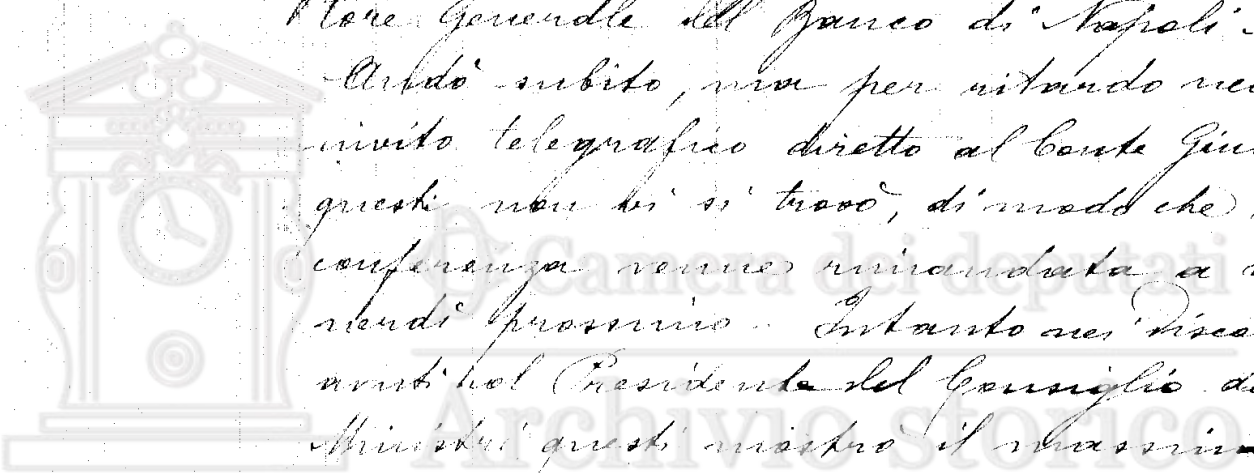 tore Generale del Banco di Napoli -
Andò subito, ma per ritardo nel
invito telegrafico diretto al Conte Giu
questi non vi si trovò, di modo che
conferenza venne rimandata a
nerdì prossimo. Intanto nei disco
avuti col Presidente del Consiglio de
Ministri questi mostrò il massim
Camera dei deputati
Archivio storico